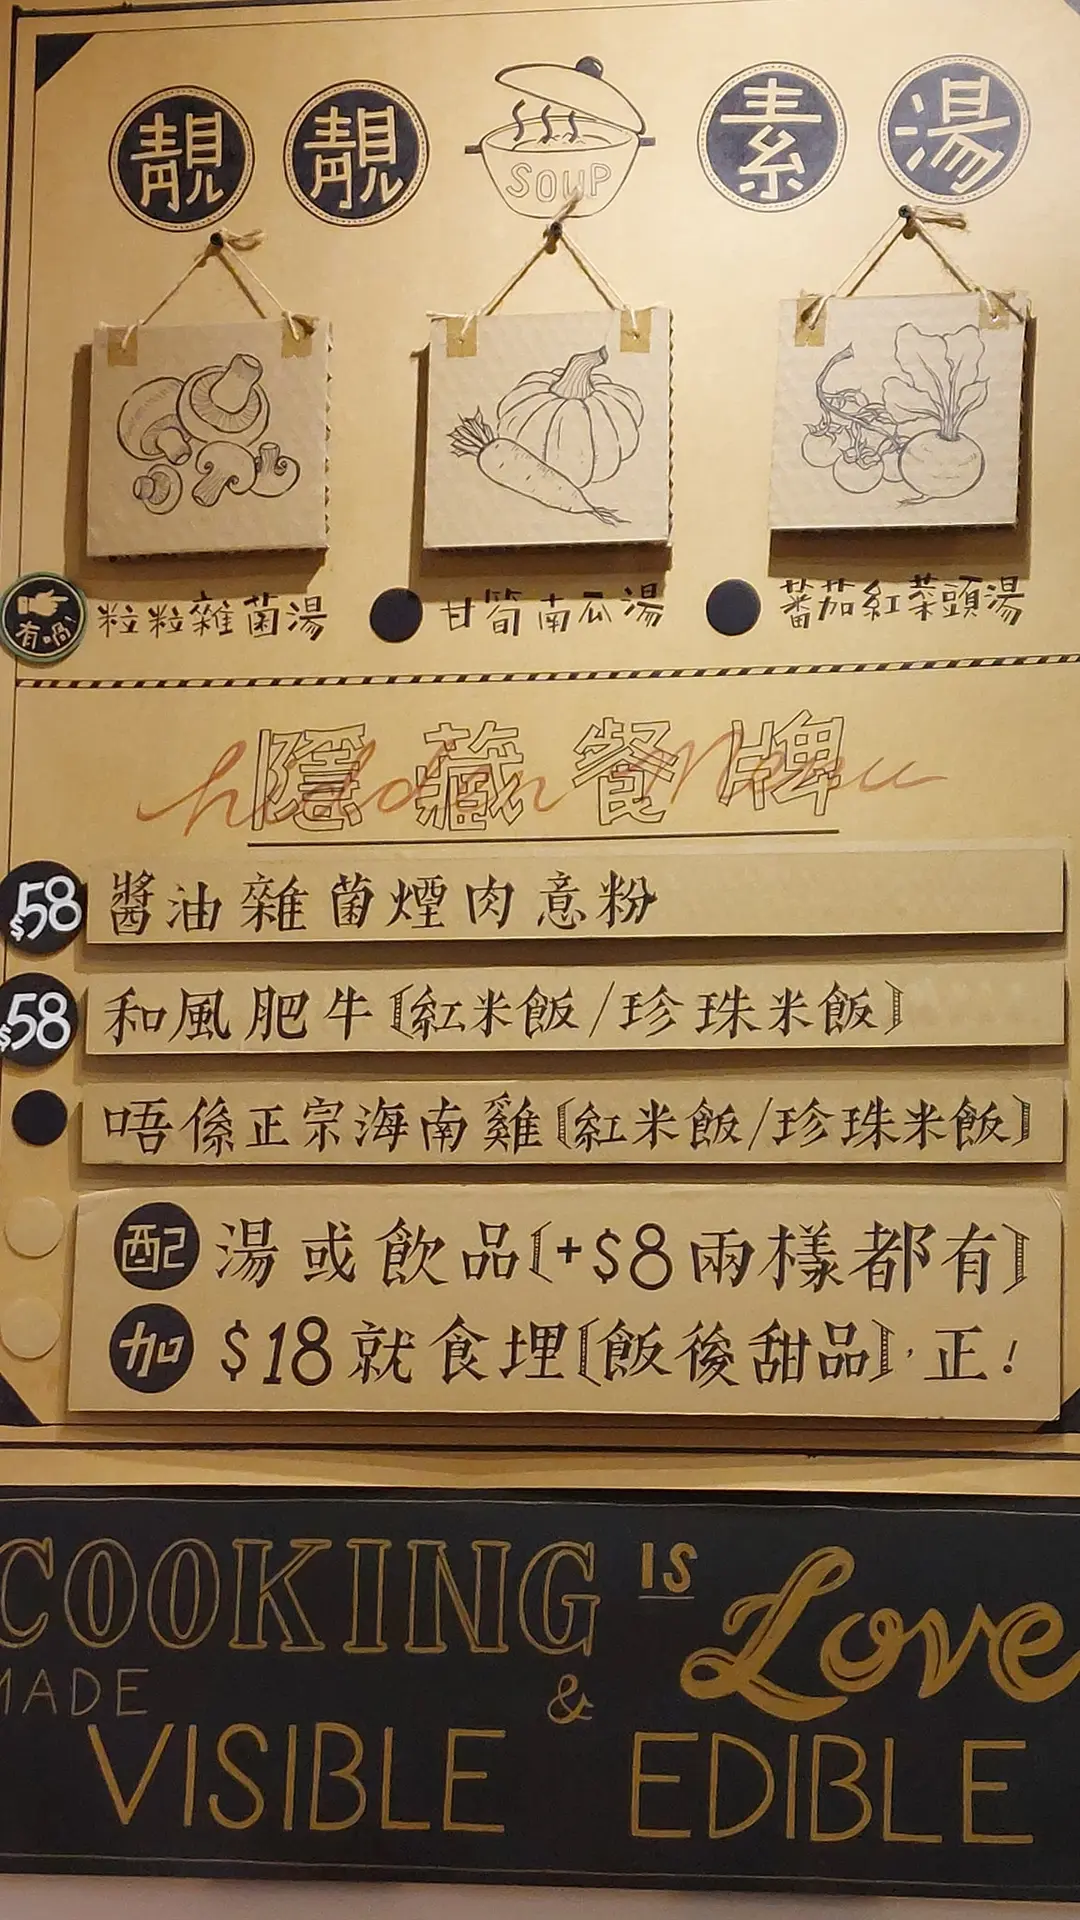 靚 靚 SOUP 素 湯
有喎! 粒粒雜菌湯 甘筍南瓜湯 蕃茄紅菜頭湯
隱藏餐牌
hidden Menu
$58 醬油雜菌煙肉意粉
$58 和風肥牛〔紅米飯/珍珠米飯〕
唔係正宗海南雞〔紅米飯/珍珠米飯〕
配 湯或飲品〔+$8兩樣都有〕
加 $18就食埋〔飯後甜品〕,正!
COOKING IS Love
MADE &
VISIBLE EDIBLE